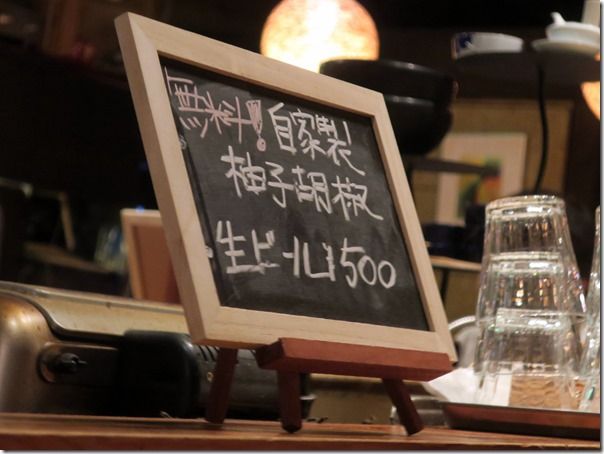 無料!! 自家製
柚子胡椒
生ビール 500